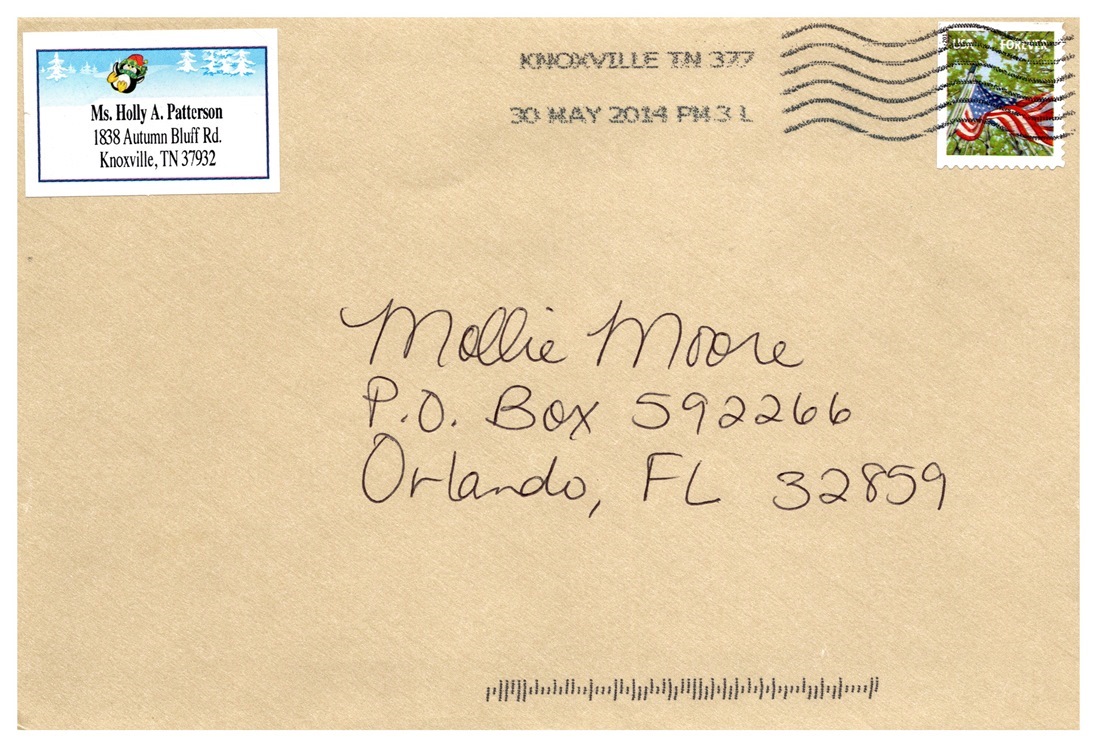 Ms. Holly A. Patterson
1838 Autumn Bluff Rd.
Knoxville, TN 37932
KNOXVILLE TN 377
30 MAY 2014 PM 3 L
Mollie Moore
P.O. Box 592266
Orlando, FL 32859